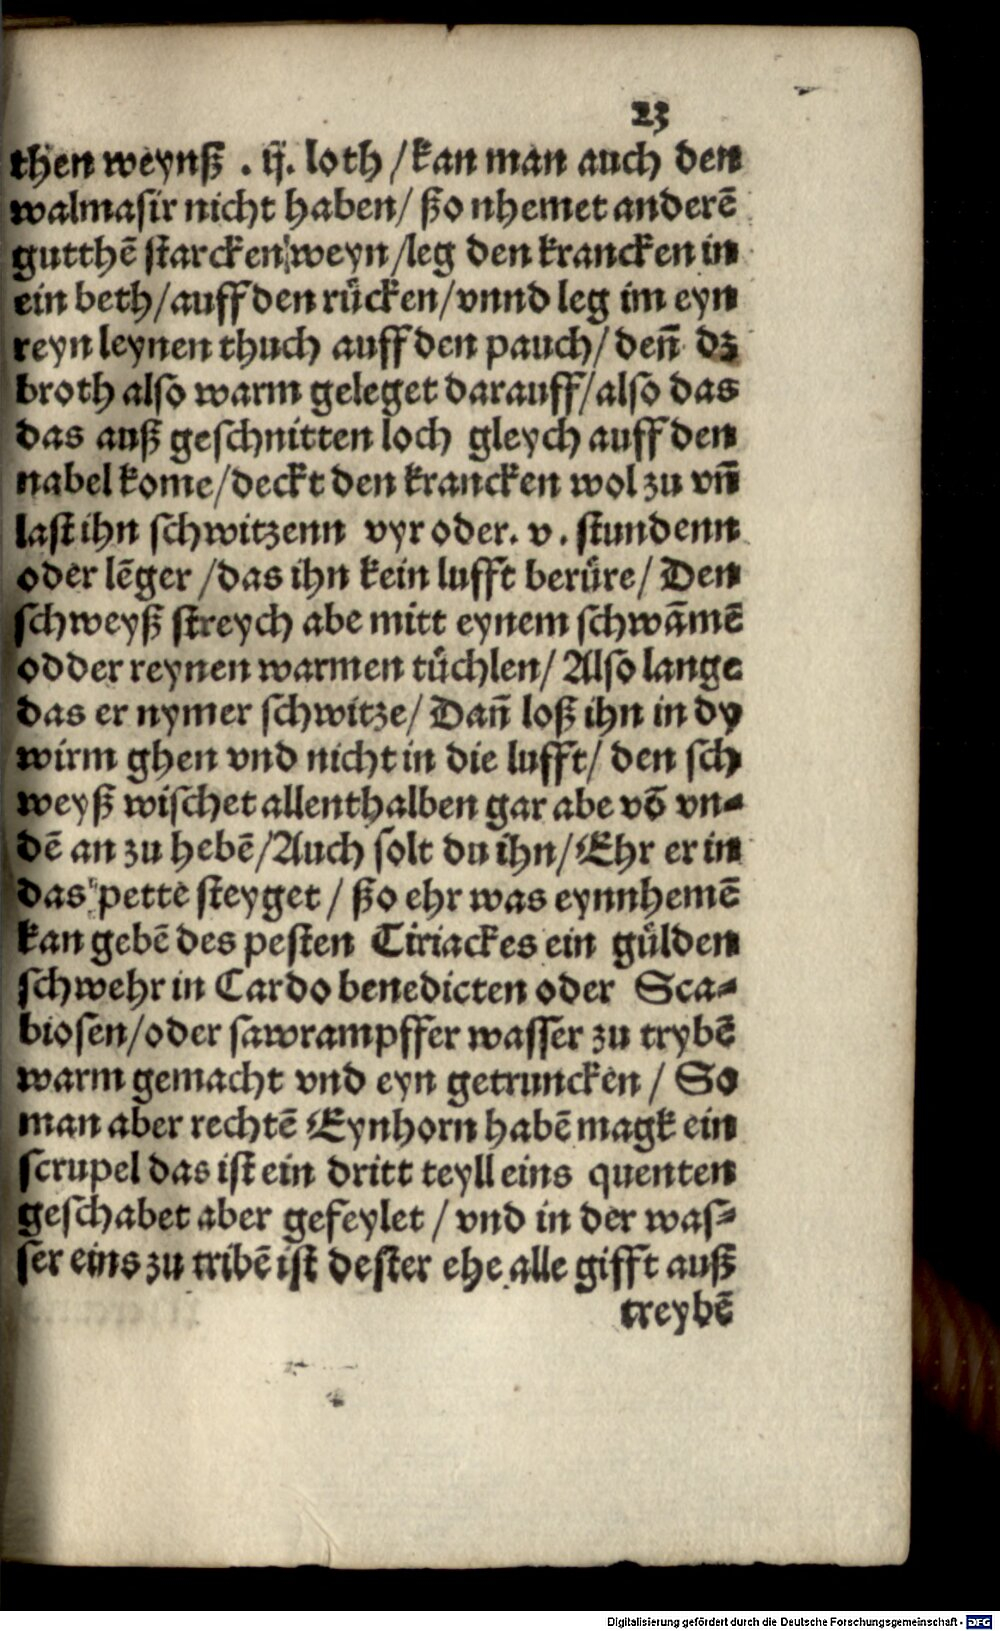 23
then weynß . ij. loth / kan man auch den
walmasir nicht haben / ßo nhemet anderē
gutthē starcken weyn / leg den krancken in
ein beth / auff den rücken / vnnd leg im eyn
reyn leynen thuch auff den pauch / den̄ dz
broth also warm geleget darauff / also das
das auß geschnitten loch gleych auff den
nabel kome / deckt den krancken wol zu vn̄
last ihn schwitzenn vyr oder . v . stundenn
oder lēger / das ihn kein lufft berüre / Den
schweyß streych abe mitt eynem schwāmē
odder reynen warmen tüchlen / Also lange
das er nymer schwitze / Dan̄ loß ihn in dy
wirm ghen vnd nicht in die lufft / den sch
weyß wischet allenthalben gar abe vō vn⸗
dē an zu hebē / Auch solt du ihn / Ehr er in
das pette steyget / ßo ehr was eynnhemē
kan gebē des pesten Tiriackes ein gülden
schwehr in Cardo benedicten oder Sca⸗
biosen / oder sawrampffer wasser zu trybē
warm gemacht vnd eyn getruncken / So
man aber rechtē Eynhorn habē magk ein
scrupel das ist ein dritt teyll eins quenten
geschabet aber gefeylet / vnd in der was⸗
ser eins zu tribē ist dester ehe alle gifft auß
treybē
Digitalisierung gefördert durch die Deutsche Forschungsgemeinschaft - DFG